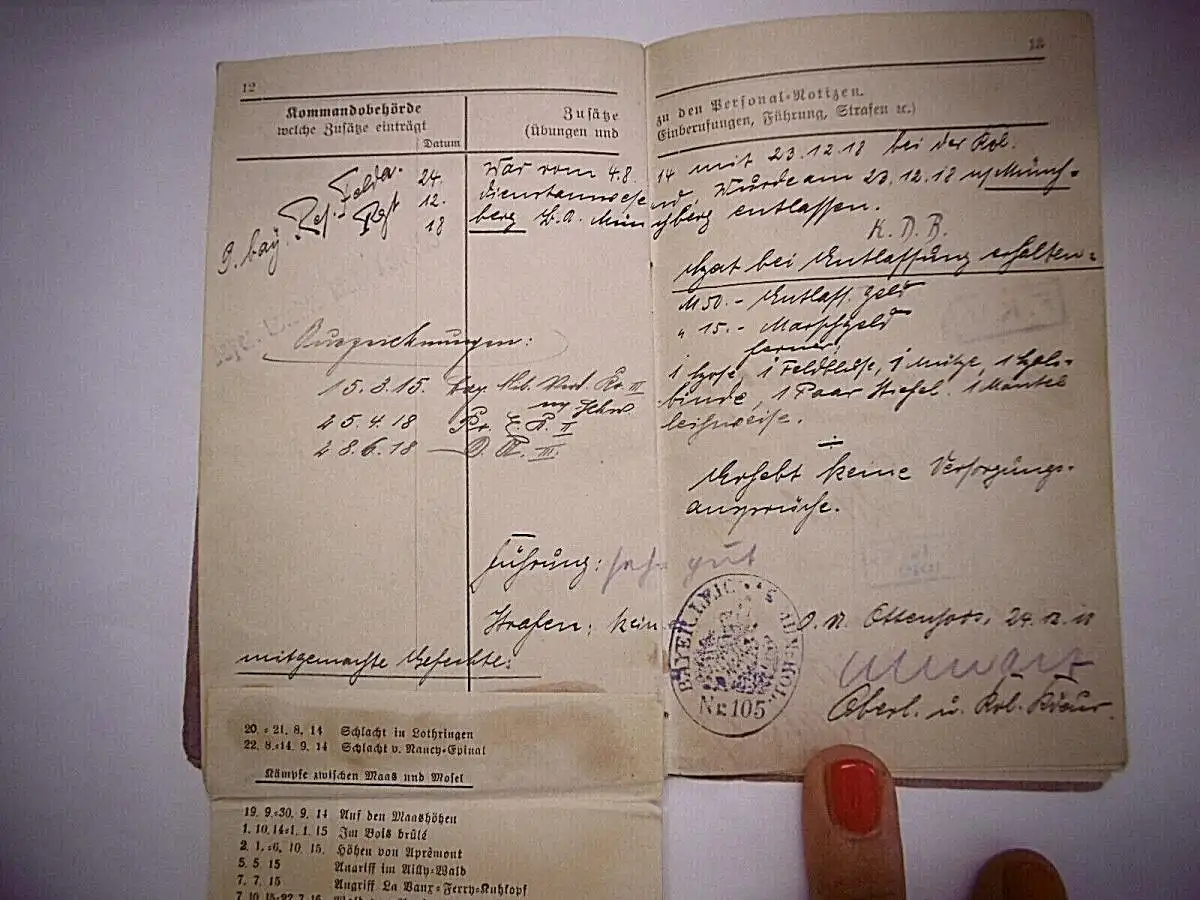 12
Kommandobehörde
welche Zusätze einträgt
Datum
Zusätze
(Übungen und
9. bay. Res. Felda.
Regt
24.
12.
18
War vom 4.8.
berg B. A. Mün
Auszeichnungen:
15.3.15. bay. Mil. Verd. Kr. III
m/ Schw
25.4.18 Pr. E. K. II
28.6.18 D. A. III.
Führung: sehr gut
Strafen: kein
mitgemachte Gefechte:
20.=21. 8. 14 Schlacht in Lothringen
22. 8.=14. 9. 14 Schlacht v. Nancy=Epinal
Kämpfe zwischen Maas und Mosel
19. 9.=30. 9. 14 Auf den Maashöhen
1. 10. 14=1. 1. 15 Im Bois brûlé
2. 1.=6. 10. 15. Höhen von Aprèmont
5. 5. 15 Angriff im Ailly=Wald
7. 7. 15 Angriff La Vaux=Ferry=Kuhkopf
7. 10. 15=22. 7. 16
13
zu den Personal=Notizen.
Einberufungen, Führung, Strafen ec.)
14 mit 23.12.18 bei der Kol.
nd, Wurde am 23.12.18 n/Münch=
berg entlassen.
K. D. B.
Hat bei Entlassung erhalten=
M 50.- Entlass. Geld
" 15.- Marschgeld
ferner
1 Hose, 1 Feldbluse, 1 Mütze, 1 Hals=
binde, 1 Paar Stiefel. 1 Mantel
leihweise.
Erhebt keine Versorgungs=
ansprüche.
O. U. Ottensoos, 24.12.18
Oberl. u. Kol.
BAYER. LEIC
MUN. KOL.
Nr. 105